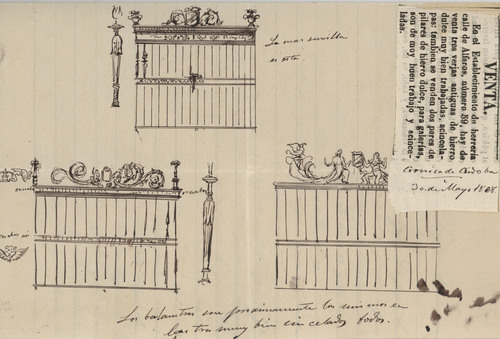 La mas sencilla
es esta
VENTA.
En el Establecimiento de herrería
calle de Alfaros, número 39, hay de
venta tres verjas antiguas de hierro
dulce muy bien trabajadas, scincela-
das: tambien se venden dos pares de
pilares de hierro dulce, para galerías,
son de muy buen trabajo y scince-
ladas.
Cronica de Cordoba
30 de Mayo 1868
Los balaustres son proximamente los mismos en
las tres muy bien cincelados todos.